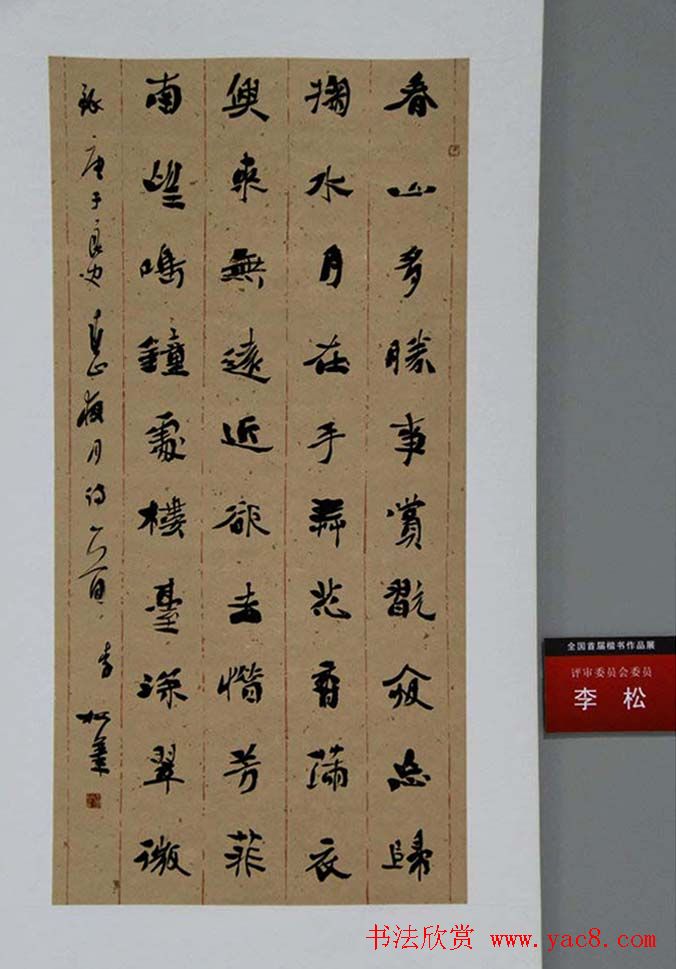 春山多勝事賞翫夜忘歸
掬水月在手弄花香滿衣
興來無遠近欲去惜芳菲
南望鳴鐘處樓臺深翠微
錄唐于良史春山夜月詩一首 李松書
全国首届楷书作品展
评审委员会委员
李 松
书法欣赏 www.yac8.com